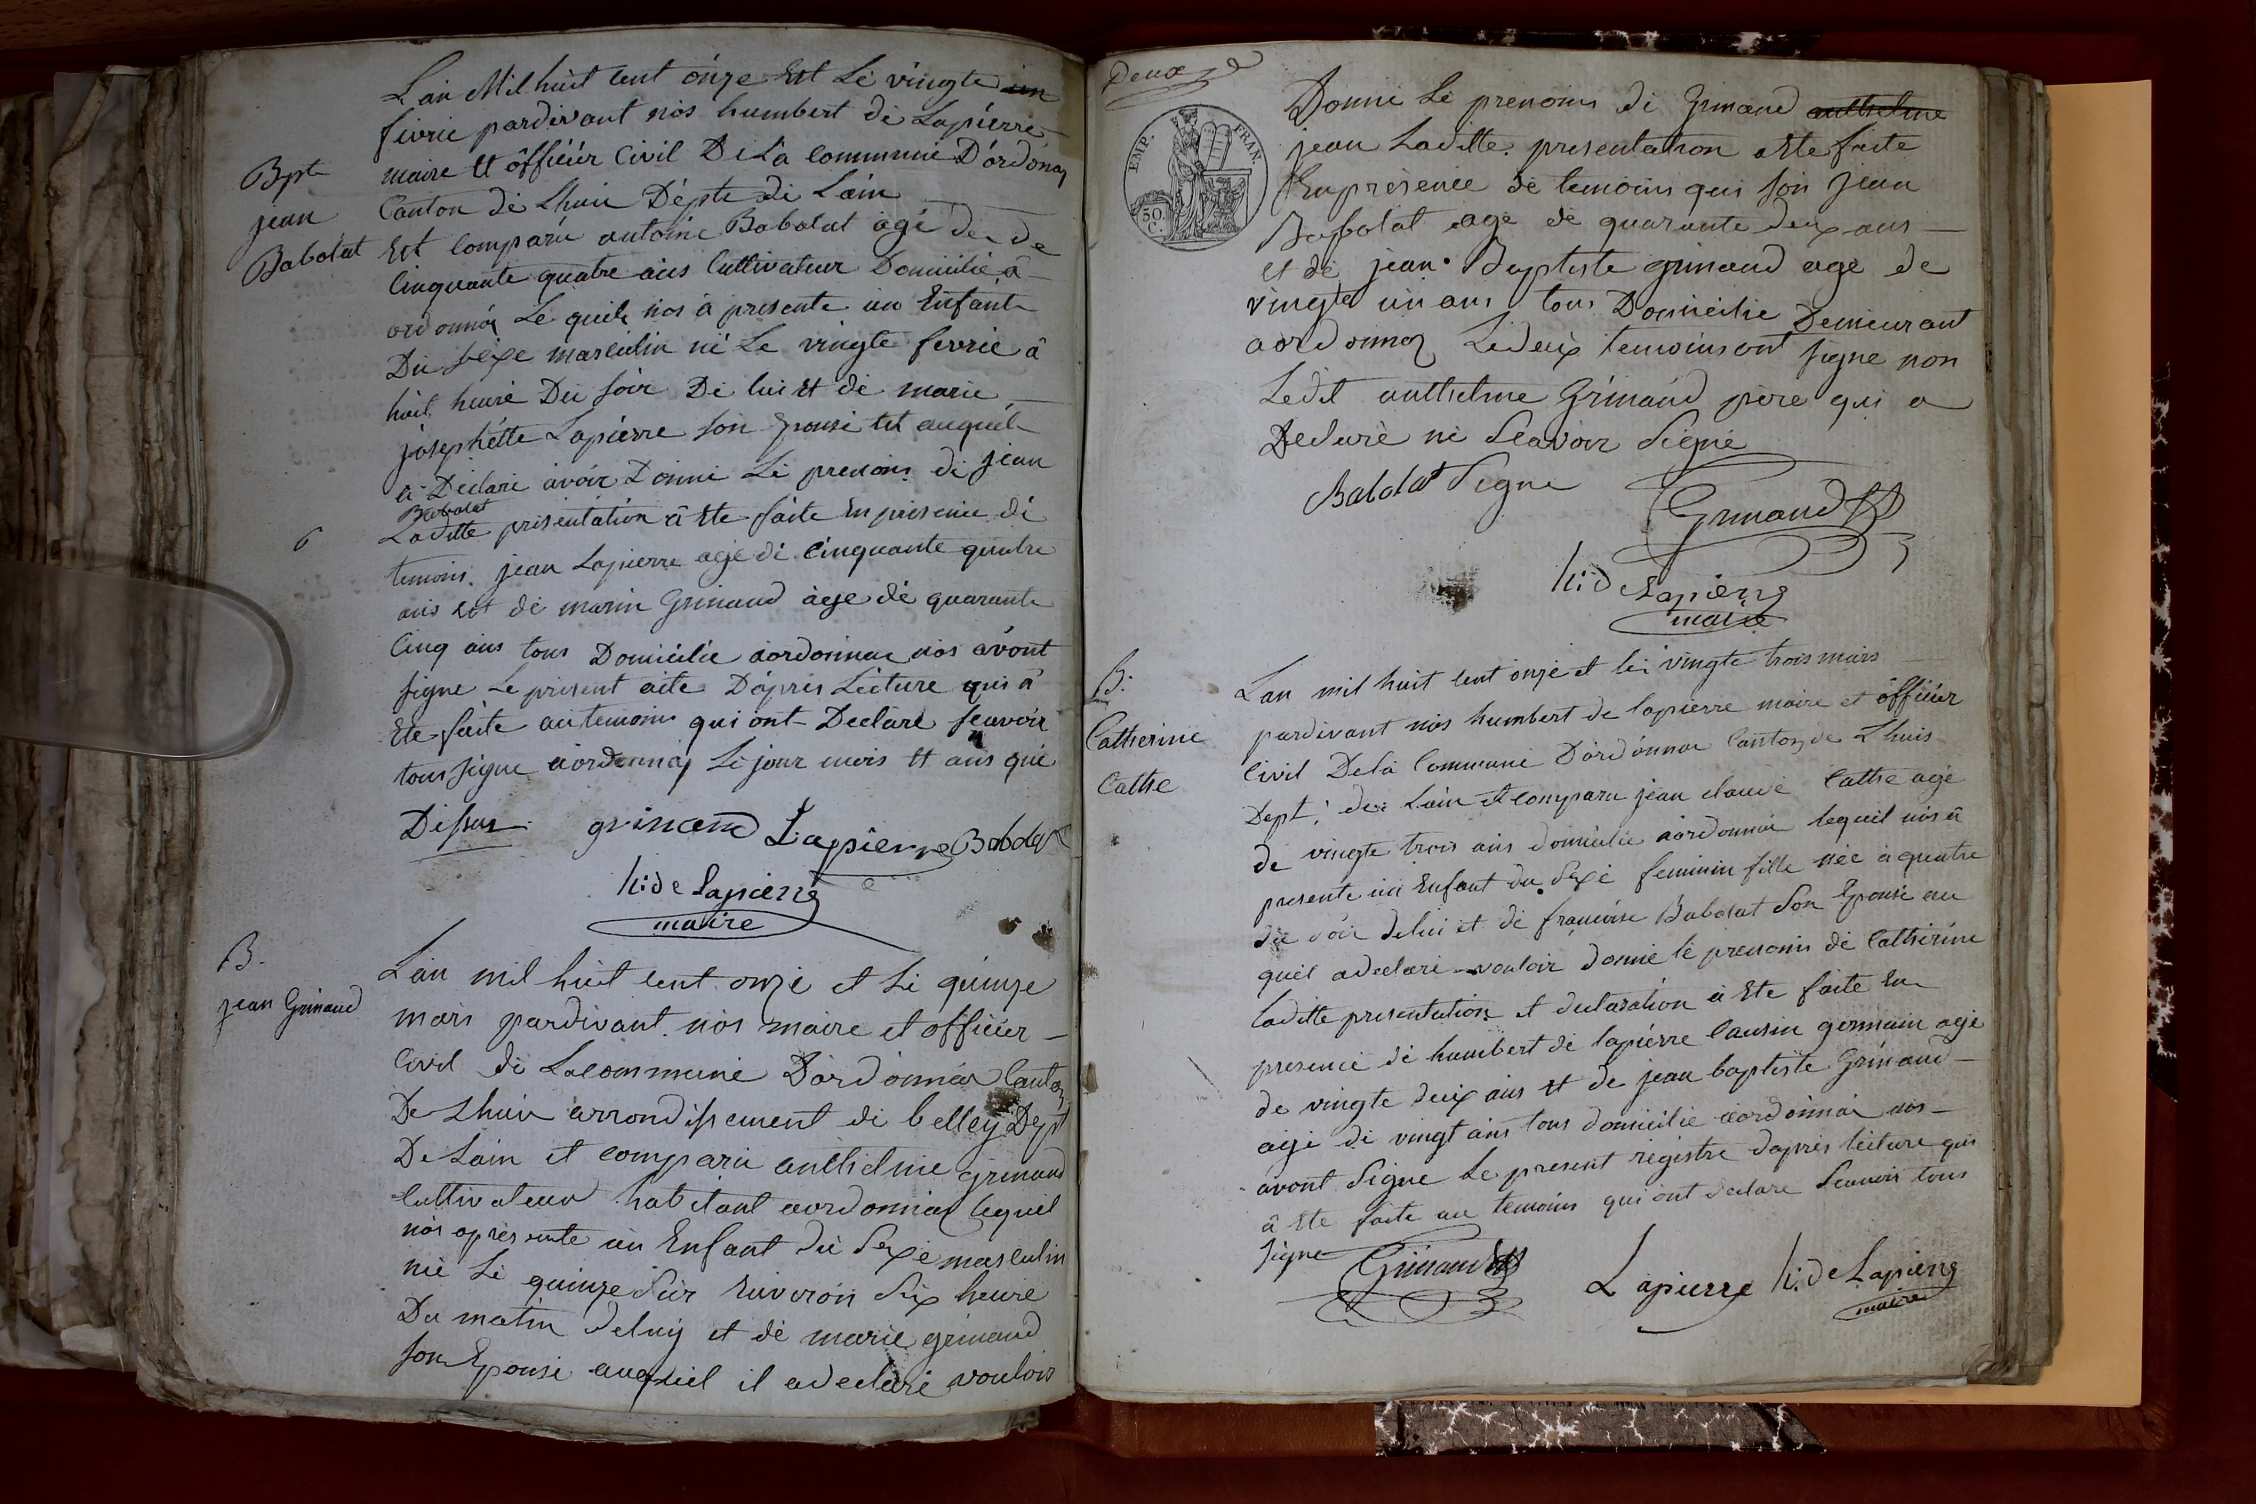 L'an Mil huit cent onze Est Le vingte un
fevrie pardevant nos humbert de Lapierre
maire et officier Civil De La commune D'ordonaz
Canton de Lhuis Dépte de L'ain
Bpte
jean
Babolat
Est Comparu antoine Babolat agé de de
Cinquante quatre ans Cultivateur Domicilie a
ordonnaz Le quil nos a presente un Enfant
Du sexe masculin né Le vingte fevrie a
huit heure Du soir De lui et de marie
josephette Lapierre son Epouse et auquel
a Déclaré avoir Donné Le prenoms de jean
Babolat
Laditte présentation a Ete faite En presence de
6
temoins. jean Lapierre age de Cinquante quatre
ans Est de marin Grinand age de quarante
Cinq ans tous Domicilie aordonnaz nos avont
signe Le present acte D'après Lecture qui a
Ete faite au temoins qui ont Declare scavoir
tous signe aordonnaz Le jour mois et ans que
Dessus grinand Lapierre Babolat
h: de Lapierre
maire
B.
jean Grinand
L'an mil huit cent onze et le quinze
mars pardivant nos maire et officier
Civil de La commune D'ordonnaz Canton
De Lhuis arrondissement de belley Dept
De Lain et comparu anthelme grinand
Cultivateur habitant aordonnaz lequel
nos apresente un Enfant du Sexe masculin
né Le quinze Sur Environ Six heure
Du matin deluy et de marie grinand
son Epouse auquel il adeclaré vouloir
Deux
EMP. FRAN.
50. C.
Donne Le prenoms de Grinand anthelme
jean Laditte presentation a Ete faite
En présence de temoins qui son jean
Babolat age de quarante deux ans
et de jean Baptiste grinand age de
vingte un ans tous Domicilie Demeurant
aordonnaz Le deux temoins ont signe non
Ledit anthelme Grinand père qui a
Declaré ne Scavoir Signé
Babolat Signe
Grinand
h: de Lapierre
maire
B:
Catherine
Cathe
Lan mil huit cent onze et le vingte trois mars
pardivant nos humbert de lapierre maire et officier
Civil Dela Commune D'ordonnaz Canton de Lhuis
Dept: de Lain et comparu jean claude Cathe age
de vingte trois ans domicilie aordonnaz lequel nos a
presente un Enfant du Sexe feminin fille née a quatre
du soir delui et de francoise Babolat Son Epouse au
quel adeclaré vouloir donné le prenoms de Catherine
Laditte presentation et declaration a Ete faite En
presence de humbert de lapierre Causin germain age
de vingte deux ans et de jean baptiste Grinand
age de vingt ans tous domicilie aordonnaz nos
avont Signe Le present registre daprès lecture qui
a Ete faite au temoins qui ont declare Scavoir tous
signe Grinand Lapierre h: de Lapierre
maire